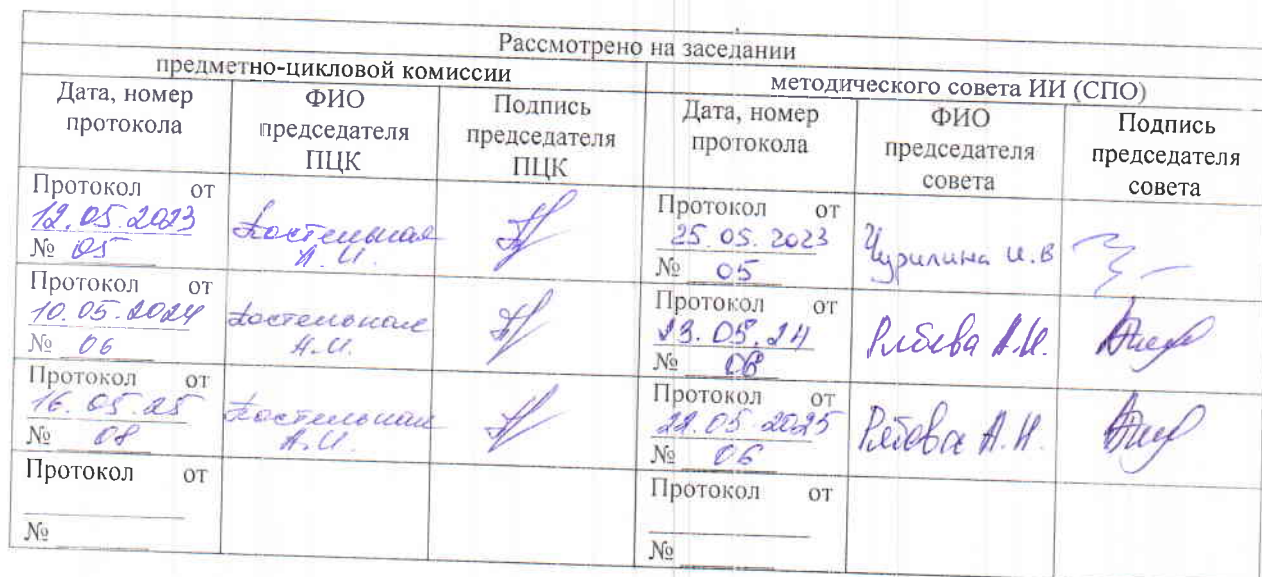 Рассмотрено на заседании
предметно-цикловой комиссии
методического совета ИИ (СПО)
Дата, номер протокола
ФИО председателя ПЦК
Подпись председателя ПЦК
Дата, номер протокола
ФИО председателя совета
Подпись председателя совета
Протокол от
12.05.2023
№ 05
А.И.
Протокол от
25.05.2023
№ 05
Чурилина И.В
Протокол от
10.05.2024
№ 06
А.И.
Протокол от
23.05.24
№
А.И.
Протокол от
16.05.25
№ 08
А.И.
Протокол от
22.05.2025
№ 06
А.И.
Протокол от
№
Протокол от
№